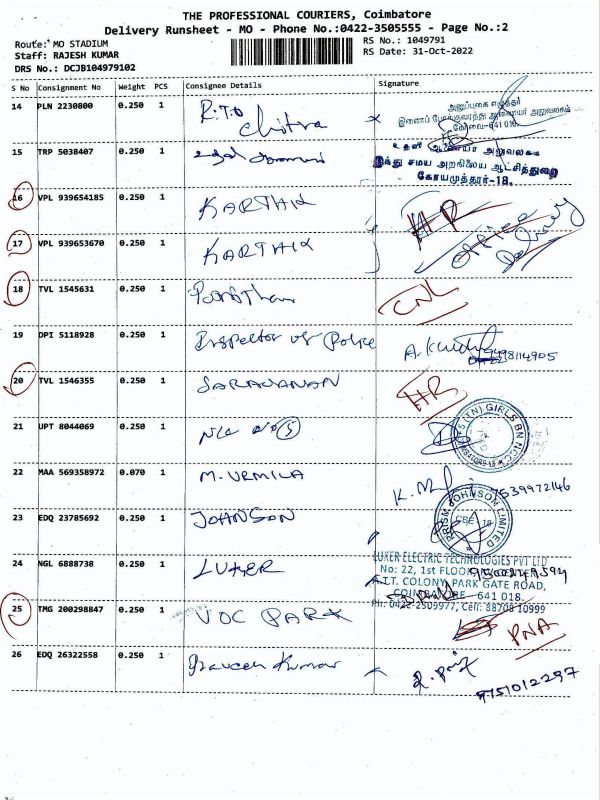 THE PROFESSIONAL COURIERS, Coimbatore
Delivery Runsheet - MO - Phone No.:0422-3505555 - Page No.:2
Route: MO STADIUM
RS No.: 1049791
Staff: RAJESH KUMAR
RS Date: 31-Oct-2022
DRS No.: DCJB104979102
S No Consignment No Weight PCS Consignee Details Signature
14 PLN 2230800 0.250 1 R.T.O Chitra
அனுப்புகை எழுத்தர்
இணைப் போக்குவரத்து ஆணையர் அலுவலகம்
கோவை-641 018.
15 TRP 5038407 0.250 1
உதவி ஆணையர் அலுவலகம்
இந்து சமய அறநிலைய ஆட்சித்துறை
கோயமுத்தூர்-18.
16 VPL 939654185 0.250 1 KARTHIK HR
17 VPL 939653670 0.250 1 KARTHIK office Delivery
18 TVL 1545631 0.250 1 CNL
19 DPI 5118928 0.250 1 Inspector of Police
20 TVL 1546355 0.250 1 SARAVANAN HR
21 UPT 8044069 0.250 1
5 (TN) GIRLS BN NCC
22 MAA 569358972 0.070 1 M. URMILA
23 EDQ 23785692 0.250 1 JOHNSON
PRISM JOHNSON LIMITED
CBE - 18
24 NGL 6888738 0.250 1 LUKER
LUKER ELECTRIC TECHNOLOGIES PVT LTD
No: 22, 1st FLOOR
A.T.T. COLONY, PARK GATE ROAD,
COIMBATORE - 641 018.
Ph: 0422-2509977, Cell: 88708 10999
25 TMG 200298847 0.250 1 VOC PARK PNA
26 EDQ 26322558 0.250 1 Praveen Kumar
9751012297